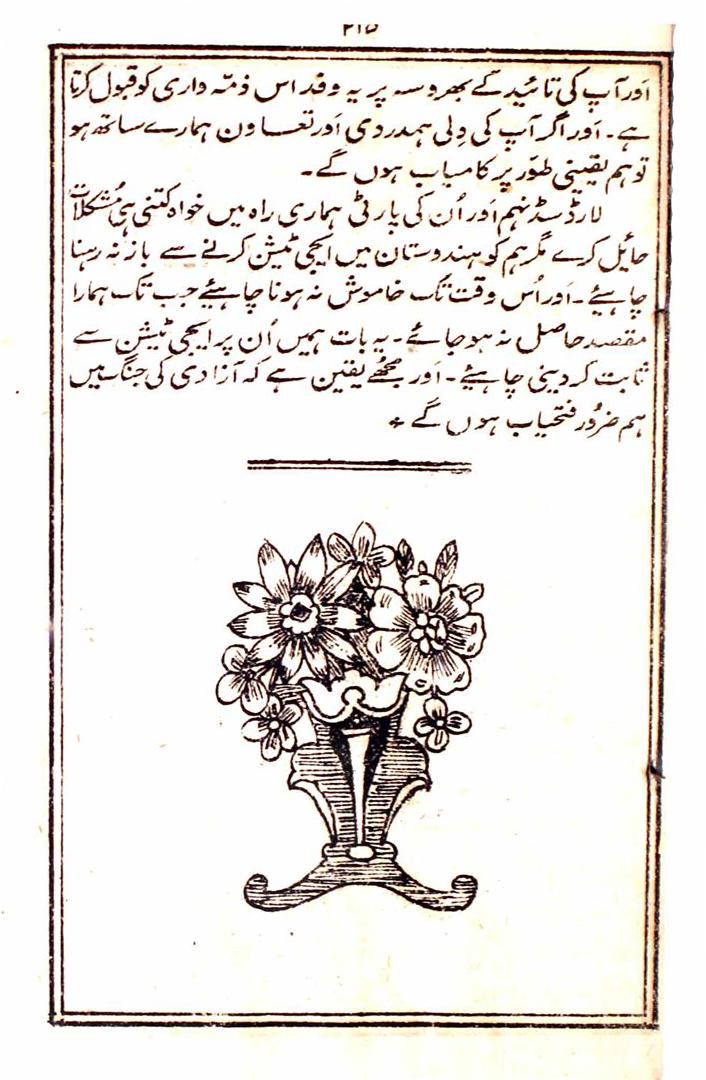 ۲۱۵
اَور آپ کی تائید کے بھروسہ پر یہ وفد اس ذمّہ واری کو قبول کرتا
ہے۔ اَور اگر آپ کی دِلی ہمدردی اَور تعاون ہمارے ساتھ ہو
تو ہم یقینی طَور پر کامیاب ہوں گے۔
لارڈ سڈنہم اَور اُن کی پارٹی ہماری راہ میں خواہ کتنی ہی مُشکلات
حائِل کرے مگر ہم کو ہندوستان میں ایجی ٹیشن کرنے سے باز نہ رہنا
چاہیئے۔ اَور اُس وقت تک خاموش نہ ہونا چاہیئے جب تک ہمارا
مقصد حاصل نہ ہو جائے۔ یہ بات ہمیں اُن پر ایجی ٹیشن سے
ثابت کر دینی چاہیئے۔ اَور مجھے یقین ہے کہ آزادی کی جنگ میں
ہم ضرُور فتحیاب ہوں گے ٭